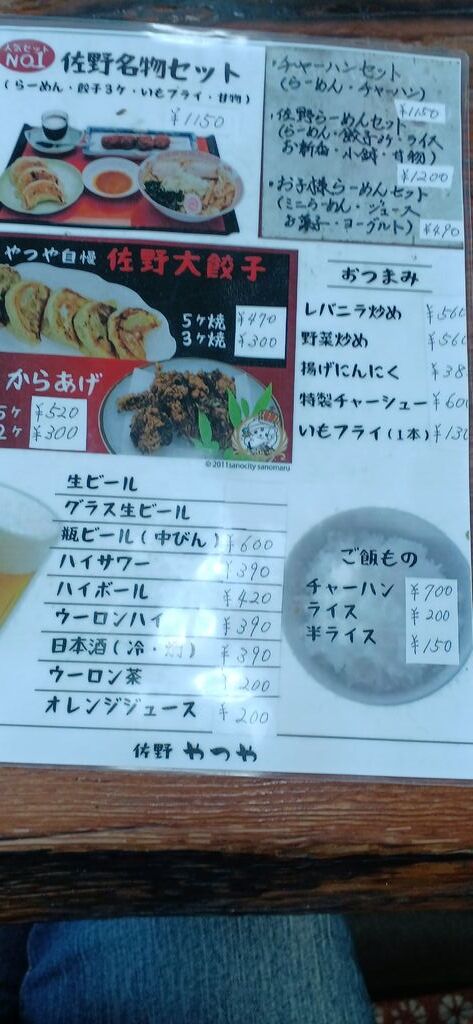 人気セット
NO.1
佐野名物セット
(らーめん・餃子3ケ・いもフライ・甘物)
¥1150
・チャーハンセット
(らーめん・チャーハン)
¥1150
・佐野らーめんセット
(らーめん・餃子2ケ・ライス
お新香・小鉢・甘物)
¥1200
・お子様らーめんセット
(ミニらーめん・ジュース
お菓子・ヨーグルト)
¥490
やつや自慢 佐野大餃子
5ケ焼 ¥470
3ケ焼 ¥300
からあげ
5ケ ¥520
2ケ ¥300
© 2011sanocity sanomaru
おつまみ
レバニラ炒め ¥560
野菜炒め ¥560
揚げにんにく ¥38
特製チャーシュー ¥600
いもフライ(1本) ¥130
生ビール
グラス生ビール
瓶ビール(中びん) ¥600
ハイサワー ¥390
ハイボール ¥420
ウーロンハイ ¥390
日本酒(冷・燗) ¥390
ウーロン茶 ¥200
オレンジジュース ¥200
ご飯もの
チャーハン ¥700
ライス ¥200
半ライス ¥150
佐野 やつや